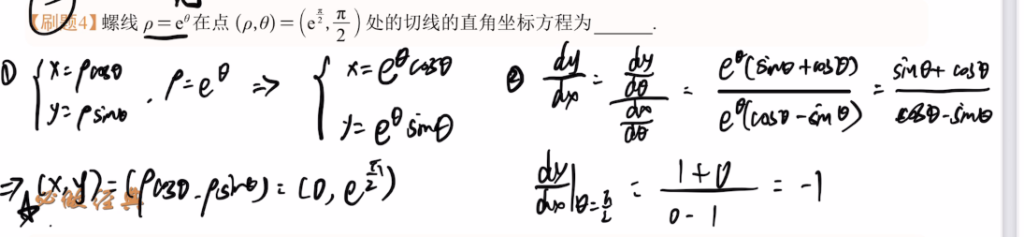 【刷题4】螺线 ρ=e^θ 在点 (ρ,θ)=(e^{π/2}, π/2) 处的切线的直角坐标方程为______.
① { x=ρcosθ y=ρsinθ . ρ=e^θ ⇒ { x=e^θ cosθ y=e^θ sinθ
② dy/dx = (dy/dθ)/(dx/dθ) = e^θ(sinθ+cosθ)/e^θ(cosθ-sinθ) = (sinθ+cosθ)/(cosθ-sinθ)
⇒ (x,y)=(ρcosθ,ρsinθ)=(0,e^{π/2})
dy/dx|θ=π/2 = (1+0)/(0-1) = -1